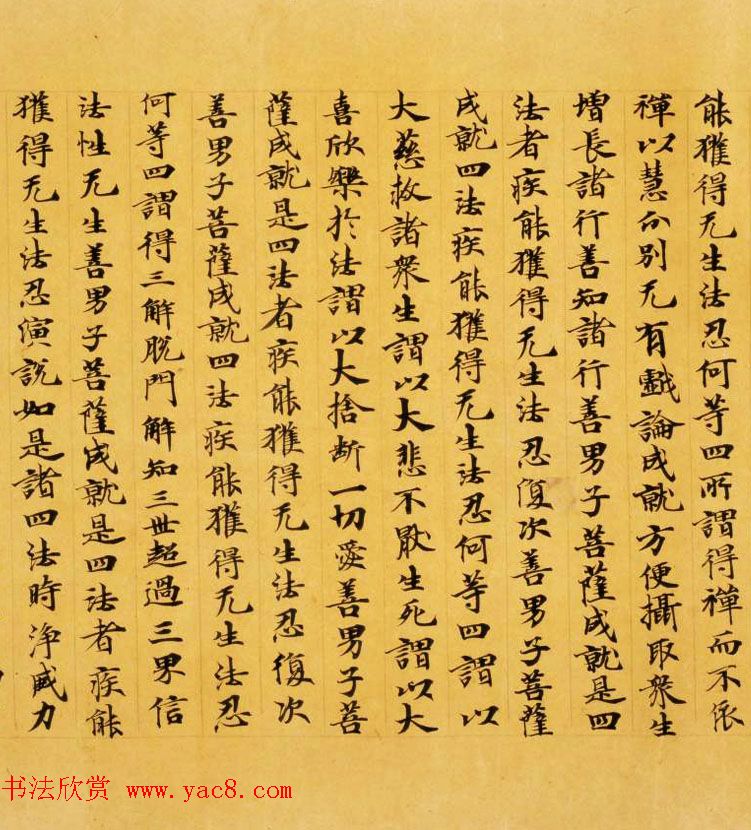 能獲得无生法忍何等四所謂得禪而不依
禪以慧分別无有戲論成就方便攝取衆生
增長諸行善知諸行善男子菩薩成就是四
法者疾能獲得无生法忍復次善男子菩薩
成就四法疾能獲得无生法忍何等四謂以
大慈救諸衆生謂以大悲不厭生死謂以大
喜欣樂於法謂以大捨斷一切愛善男子菩
薩成就是四法者疾能獲得无生法忍復次
善男子菩薩成就四法疾能獲得无生法忍
何等四謂得三解脫門解知三世超過三界信
法性无生善男子菩薩成就是四法者疾能
獲得无生法忍演說如是諸四法時淨威力
书法欣赏 www.yac8.com